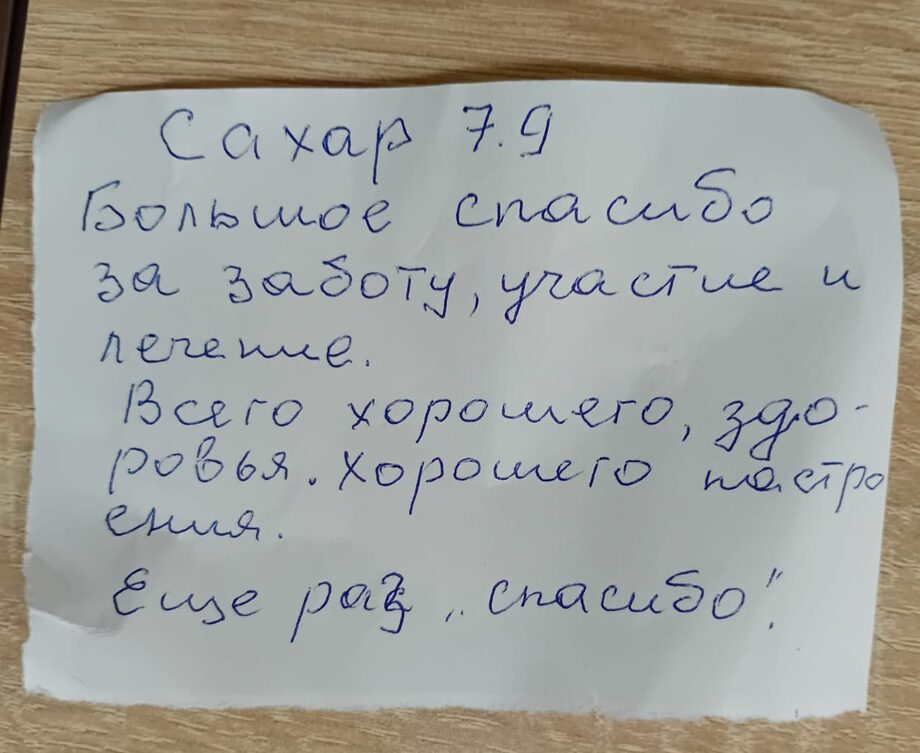 Сахар 7.9
Большое спасибо
за заботу, участие и
лечение.
Всего хорошего, здо-
ровья. Хорошего настро
ения.
Еще раз „спасибо".